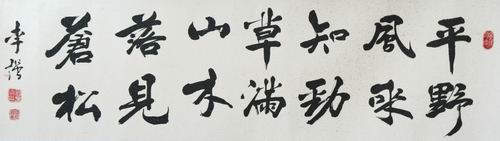 平野
風來
知勁
草滿
山木
落見
蒼松
李鐸